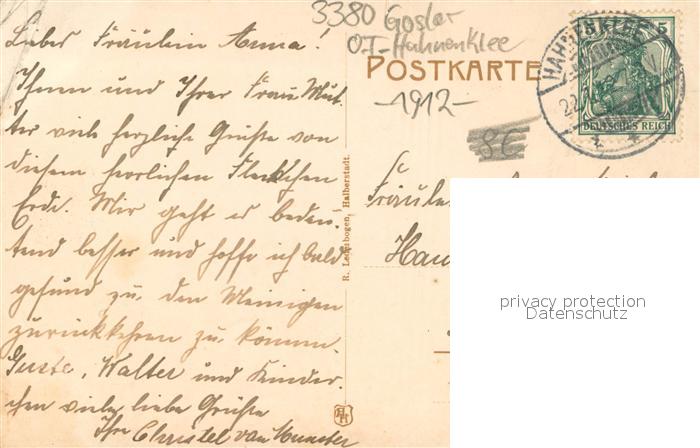 Liebes Fräulein Anna!
Ihnen und Ihrer Frau Mut-
ter viele herzliche Grüße von
diesem herrlichen Fleckchen
Erde. Mir geht es bedeu-
tend besser und hoffe ich bald
gesund zu den Meinigen
zurückkehren zu können.
Guste, Walter und Kinder-
chen viele liebe Grüße
Ihre Christel van
3380 Goslar
OT-Hahnenklee
POSTKARTE
-1912-
8C
HAHNENKLEE
22.
5
DEUTSCHES REICH
R. Lederbogen, Halberstadt.
Fräulein
Han
privacy protection
Datenschutz